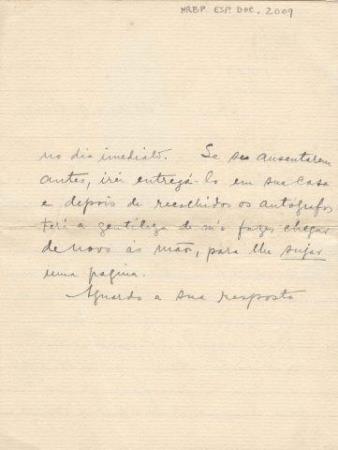 MRBP. ESP. DOC. 2009
no dia imediato. Se se ausentarem
antes, irei entregá-lo em sua casa
e depois de recolhidos os autógrafos
terá a gentileza de m'o fazer chegar
de novo ás mãos, para lhe sujar
uma pagina.
Aguardo a sua resposta